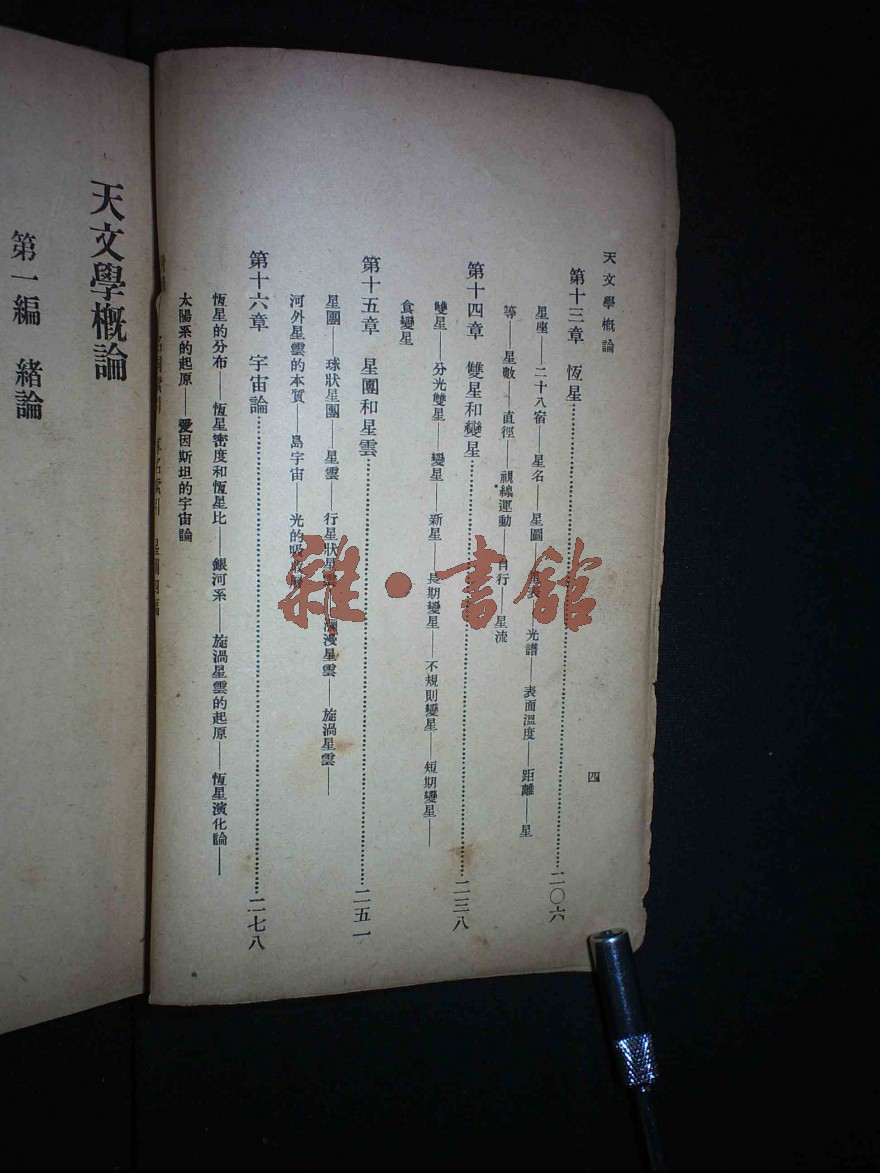 天文學概論
四
第十三章　恆星……二〇六
星座——二十八宿——星名——星圖——星表——光譜——表面溫度——距離——星
等——星數——直徑——視線運動——自行——星流
第十四章　雙星和變星……二三八
雙星——分光雙星——變星——新星——長期變星——不規則變星——短期變星——
食變星
第十五章　星團和星雲……二五一
星團——球狀星團——星雲——行星狀星雲——瀰漫星雲——旋渦星雲——
河外星雲的本質——島宇宙——光的吸
第十六章　宇宙論……二七八
恆星的分布——恆星密度和恆星比——銀河系——旋渦星雲的起原——恆星演化論——
太陽系的起原——愛因斯坦的宇宙論
天文學概論
第一編　緒論
雜·書館